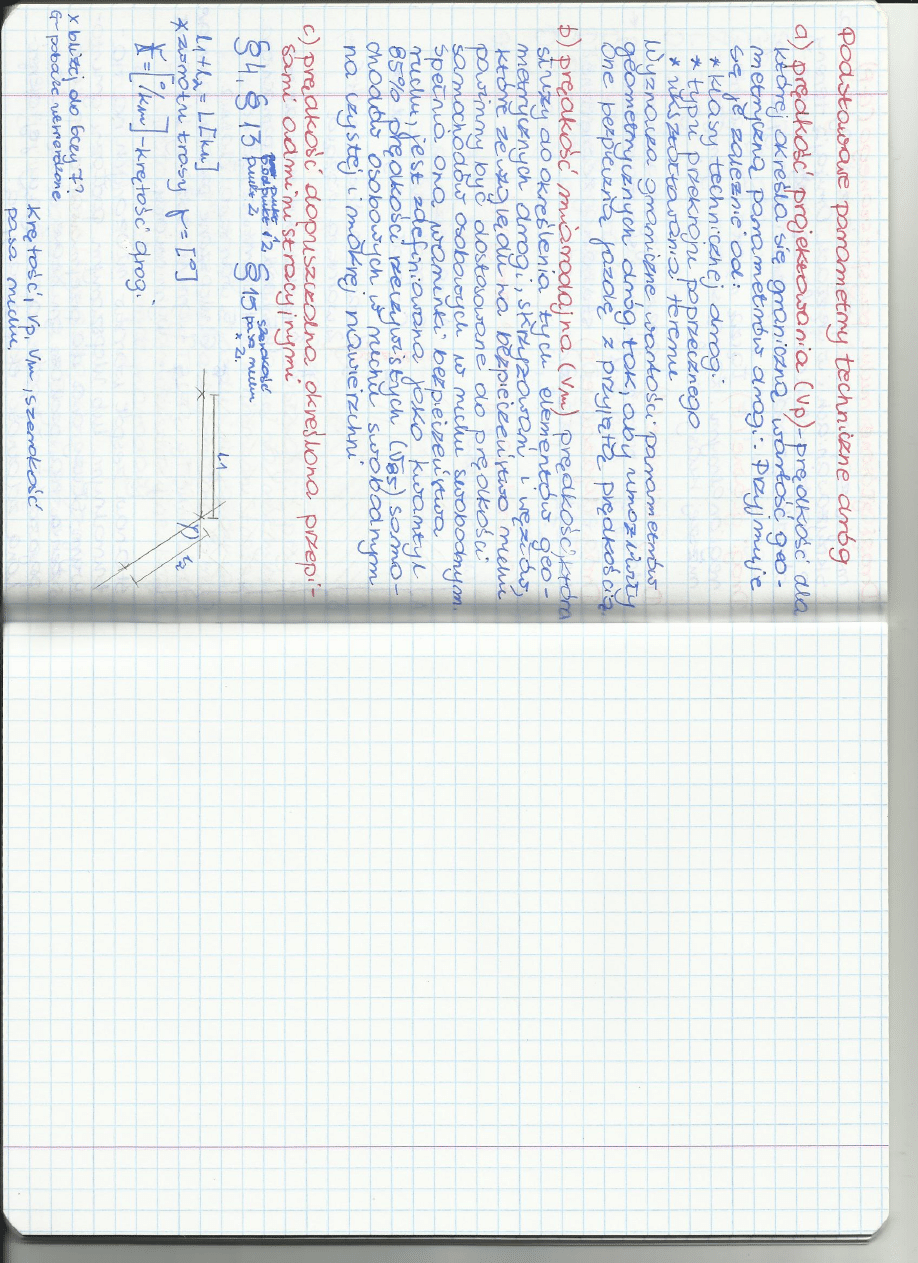 Podstawowe parametry techniczne dróg
a) prędkość projektowania (Vp) - prędkość dla
której określa się graniczną wartość geo-
metryczną parametrów drogi. Przyjmuje
się je zależnie od:
* klasy technicznej drogi
* typu przekroju poprzecznego
* ukształtowania terenu
Wyznacza graniczne wartości parametrów
geometrycznych dróg tak, aby umożliwiły
one bezpieczną jazdę z przyjętą prędkością
b) prędkość miarodajna (Vm) prędkość, która
służy do określenia tych elementów geo-
metrycznych drogi, skrzyżowań i węzłów,
które ze względu na bezpieczeństwo ruchu
powinny być dostosowane do prędkości
samochodów osobowych w ruchu swobodnym.
Spełnia ona warunki bezpieczeństwa
ruchu, jest zdefiniowana jako kwantyl
85% prędkości rzeczywistych (V85) samo-
chodów osobowych w ruchu swobodnym
na czystej i mokrej nawierzchni
c) prędkość dopuszczalna określona przepi-
sami administracyjnymi
§4, § 13 punkt 1, 2 § 15 szerokość
podpunkt 2. pasa ruchu
x 2.
L1 + L2 = L [km]
* zwrotu trasy γ = [°]
K = [°/km] - krętość drogi
L1
γ
L2
x bliżej do bazy 7?
G - pobocze
Krętość, Vp, Vm, szerokość
pasa ruchu,